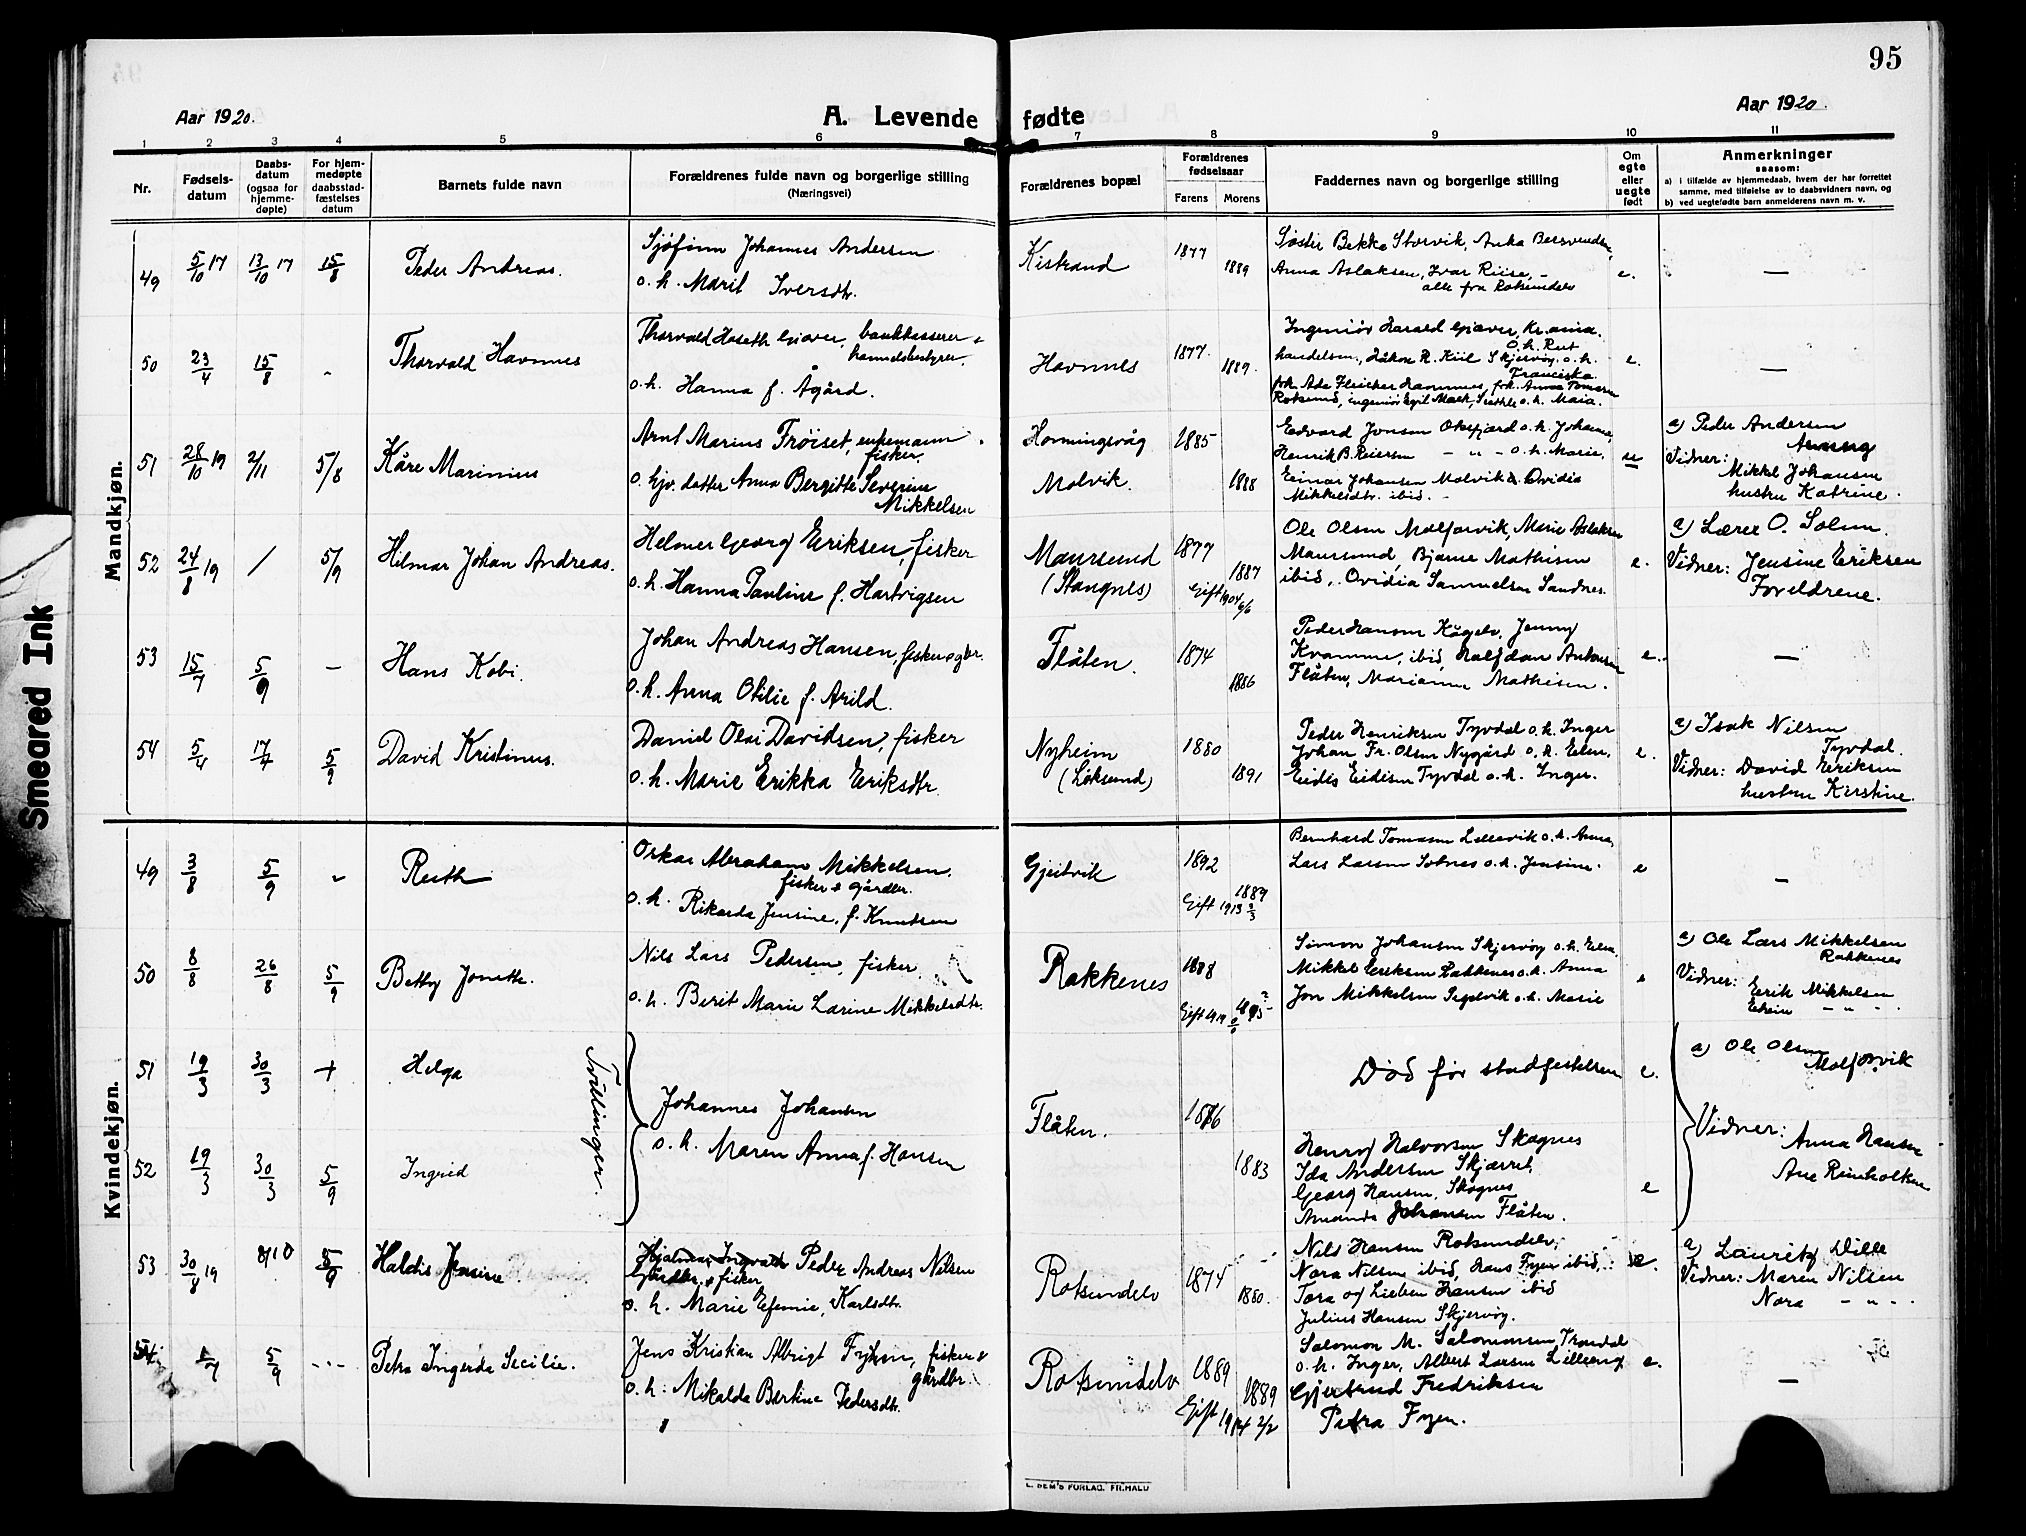 95
Aar 1920.
A. Levende fødte
Aar 1920.
1 2 3 4 5 6 7 8 9 10 11
Nr.
Fødsels-
datum
Daabs-
datum
(ogsaa for
hjemme-
døpte)
For hjem-
medøpte
daabsstad-
fæstelses
datum
Barnets fulde navn
Forældrenes fulde navn og borgerlige stilling
(Næringsvei)
Forældrenes bopæl
Forældrenes
fødselsaar
Farens Morens
Faddernes navn og borgerlige stilling
Om
egte
eller
uegte
født
Anmerkninger
saasom:
a) i tilfælde av hjemmedaab, hvem der har forrettet
samme, med tilføielse av to daabsvidners navn, og
b) ved uegtefødte barn anmelderens navn m. v.
Smeared Ink
Mandkjøn.
49 5/10 17 13/10 17 15/8
Peder Andreas.
Sjøfinn Johannes Andersen
o. h. Marit Iversdtr.
Kistrand
1877
1889
Søster Bekka Storvik, Anka
Anna Aslaksen, Ivar Riise, -
alle fra Rotsundelv
e.
—
50 23/4 15/8 -
Thorvald Havnnes
Thorvald Giæver, bankkasserer &
o. h. Hanna f. Ågård.
Havnnes
1877.
1889.
Ingeniør Harald Giæver, Kr.ania.
o. h. Rut
handelsm. Håkon R. Kiil Skjervøy. o. h.
Franciska.
frk. Ada Fleischer Havnnes, frk. Anna
Rotsund, ingeniør Egil Mack, o. h. Maia.
e.
—
51 28/10 19 2/11 5/8
Kåre Marinius
Arnt Marius Frøiset, enkemann,
fisker.
o. gjv. datter Anna Bergitte Severine
Mikkelsen
Honningsvåg
Molvik.
1885
1888
Edvard Jensen Oksfjord o. h. Johanne,
Henrik B. Reiersen — " — o. h. Marie.
Einar Johansen Molvik & Ovidia
Mikkelsdtr. ibid. -
u
a) Peder Andersen
Vidner:
Mikkel Johansen
hustru Katrine.
52 24/8 19 / 5/9
Hilmar Johan Andreas.
Helmer Georg Eriksen, fisker
o. h. Hanna Pauline f. Hartvigsen
Maursund
(Stangnes)
1877
1887
Gift 1904 6/6
Ole Olsen Malfjorvik, Marie Aslaksen
Maursund, Bjarne Mathisen
ibid., Ovidia Samuelsen Sandnes.
e.
a) Lærer O. Solem.
Vidner: Jensine Eriksen
Foreldrene.
53 15/7 5/9 —
Hans Kobi.
Johan Andreas Hansen, fisker & gbr.
o. h. Anna Otilie f. Arild.
Flåten.
1874
1886
Peder Hansen Kågelv, Jenny
Kvamme, ibid, Halfdan Antonsen
Flåten, Marianne Mathisen.
e.
—
54 5/4 17/4 5/9
David Kristinus.
Daniel Olai Davidsen, fisker
o. h. Marie Erikka Eriksdtr.
Nyheim
(Löksund)
1880
1891
Peder Henriksen Tyvdal o. h. Inger
Johan Fr. Olsen Nygård o. h. Elen.
Eidis Eidisen Tyvdal o. h. Inger.
e.
a) Isak Nilsen
Tyvdal.
Vidner: David Eriksen
hustru Kirstine.
Kvindekjøn.
49 3/8 5/9 -
Ruth
Oskar Abraham Mikkelsen.
fisker & gårdbr.
o. h. Rikarda Jensine, f. Knutsen
Gjeitvik
1892
1889
Gift 1913
Bernhard Tomasen Lillevik o. h. Anna,
Lars Larsen Solnes o. h. Jensine.
e
—
50 8/8 26/8 5/9
Betty Jonette.
Nils Lars Pedersen, fisker
o. h. Berit Marie Larine Mikkelsdtr.
Rakkenes
1888
Simon Johansen Skjervøy o. h. Elen,
Mikkel Eriksen Rakkenes o. h. Anna
Jon Mikkelsen Segelvik o. h. Marie
e
a) Ole Lars Mikkelsen
Rakkenes
Vidner: Erik Mikkelsen
— " —
51 19/3 30/3 +
Helga
Tvillinger.
Johannes Johansen
o. h. Maren Anna f. Hansen
Flåten.
1876
1883
Död för stadfestelsen
e.
a) Ole Olsen
Malfjorvik
Vidner: Anna Hansen
Ane
52 19/3 30/3 5/9
Ingrid
Henry Halvorsen Skognes
Ida Andersen Skjærret,
Georg Hansen, Skognes
Amanda Johansen Flåten.
e
53 30/8 19 8/10 5/9
Haldis Jensine
Hjalmar Ingvald Peder Andreas Nilsen
Gårdbr. & fisker
o. h. Marie Efemie, Karlsdtr.
Rotsundelv
1874
1880.
Nils Hansen Rotsundelv,
Nora Nilsen ibid, Hans Fyen ibid,
Tora og Lieben Hansen ibid
Julius Hansen Skjervøy.
e.
a) Lauritz Dille
Vidner: Maren Nilsen
Nora — " —
54 5/9 ---
Petra Ingerda Secilie.
Jens Kristian Albrigt Fyhn, fisker &
gårdbr.
o. h. Mikalda Bertine Pedersdtr.
Rotsundelv
1889
1889
Gift 1914 2/2
Salomon M. Salomonsen, Trondal
o. h. Inger, Albert Larsen Lilleeng
Gjertrud Fredriksen
Petra Fyen.
e.
—
E. SEM'S FORLAG, FR.HALD